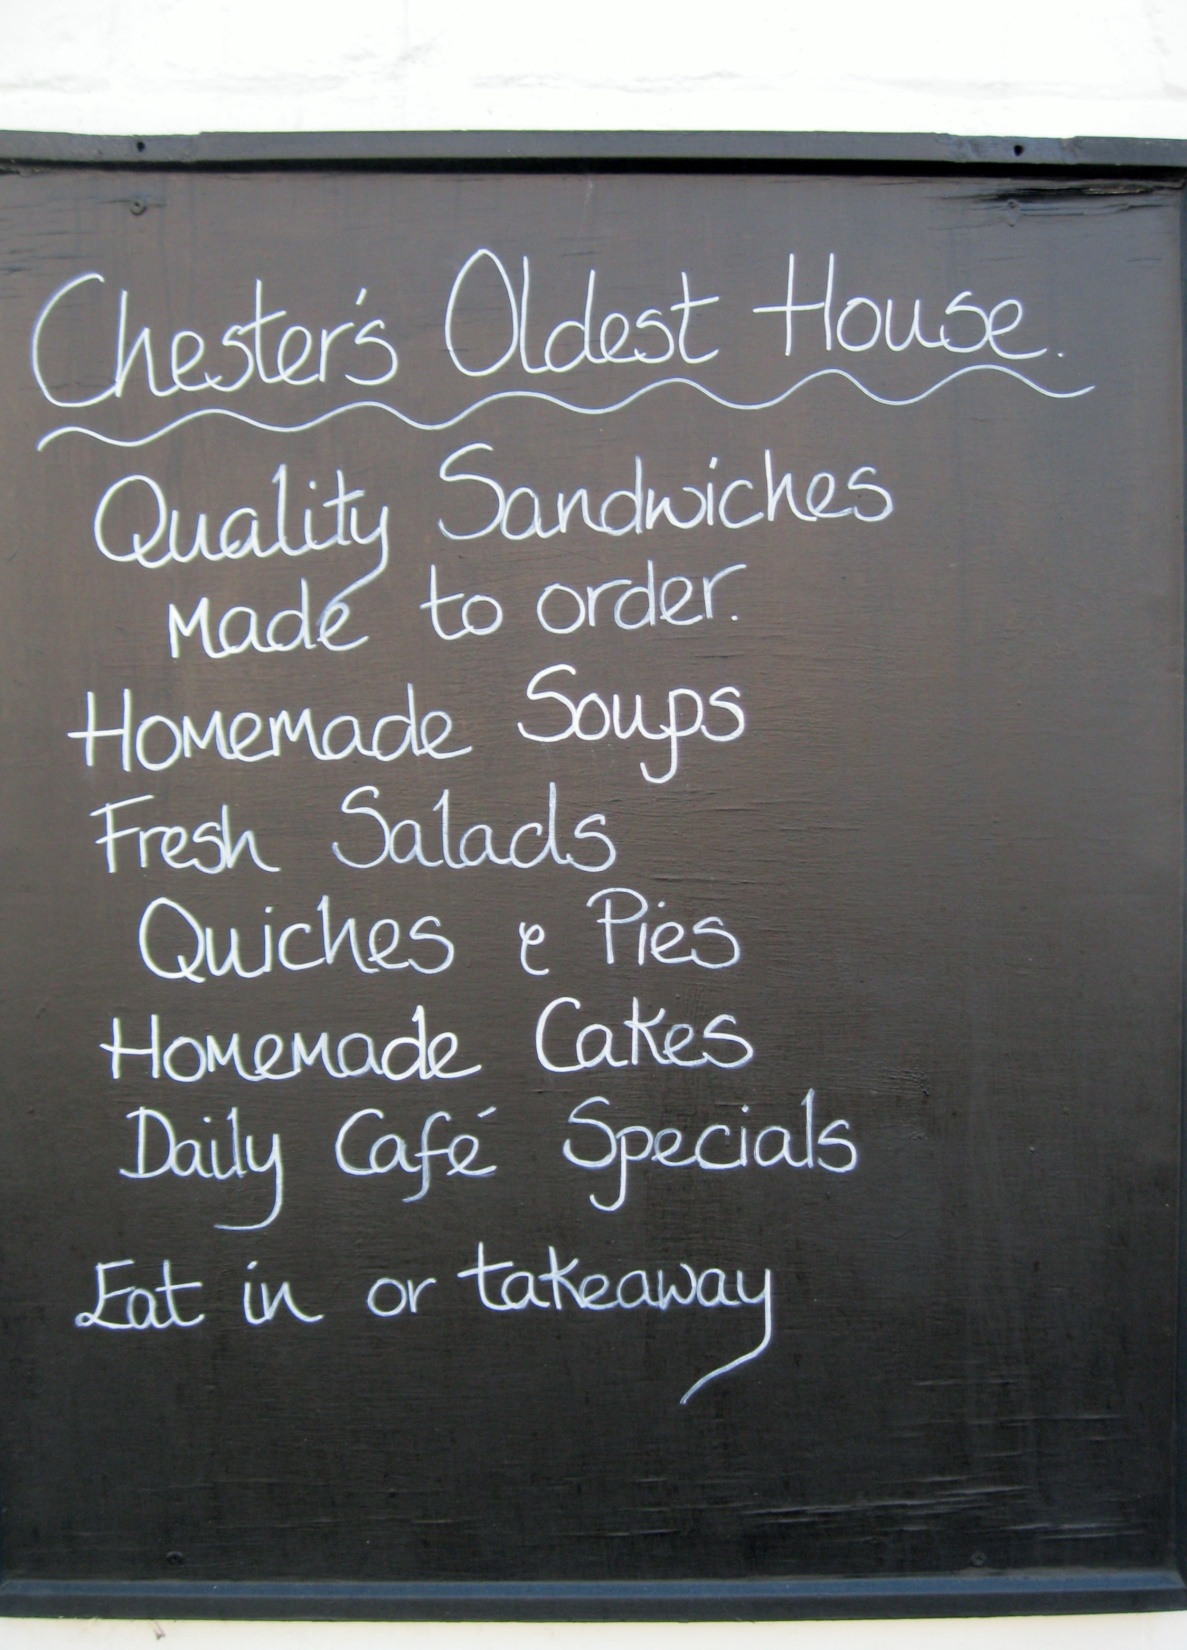 Chester's Oldest House.
Quality Sandwiches
made to order.
Homemade Soups
Fresh Salads
Quiches & Pies
Homemade Cakes
Daily Café Specials
Eat in or takeaway